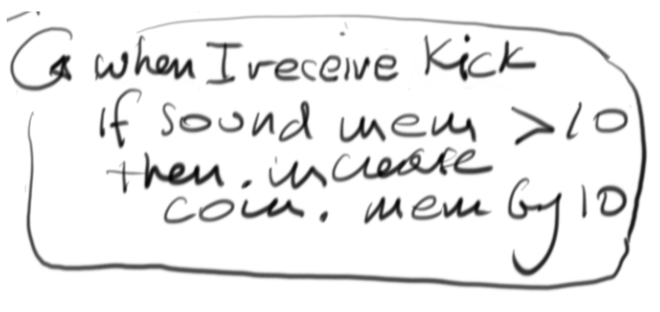 when I receive Kick
If sound mem > 10
then. increase
com. mem by 10